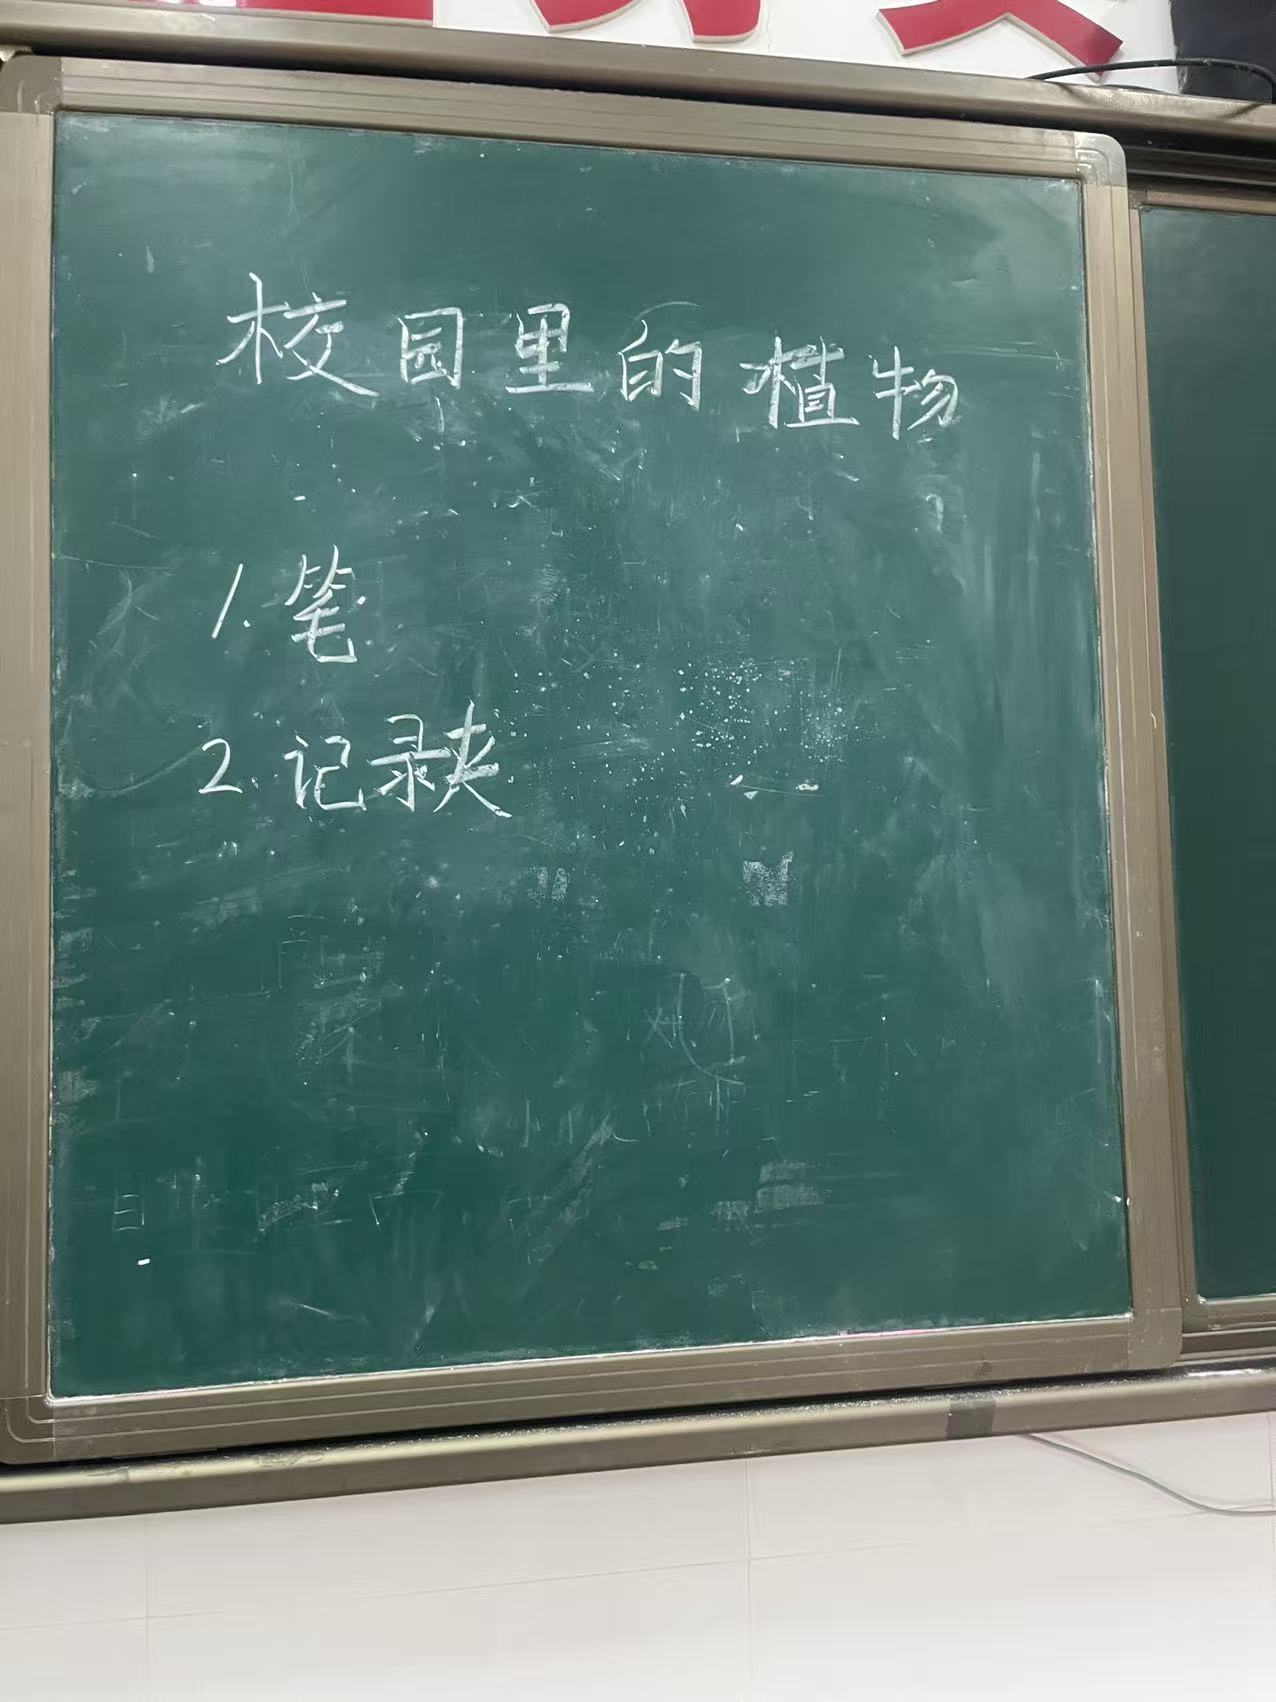 校园里的植物
1. 笔
2. 记录夹